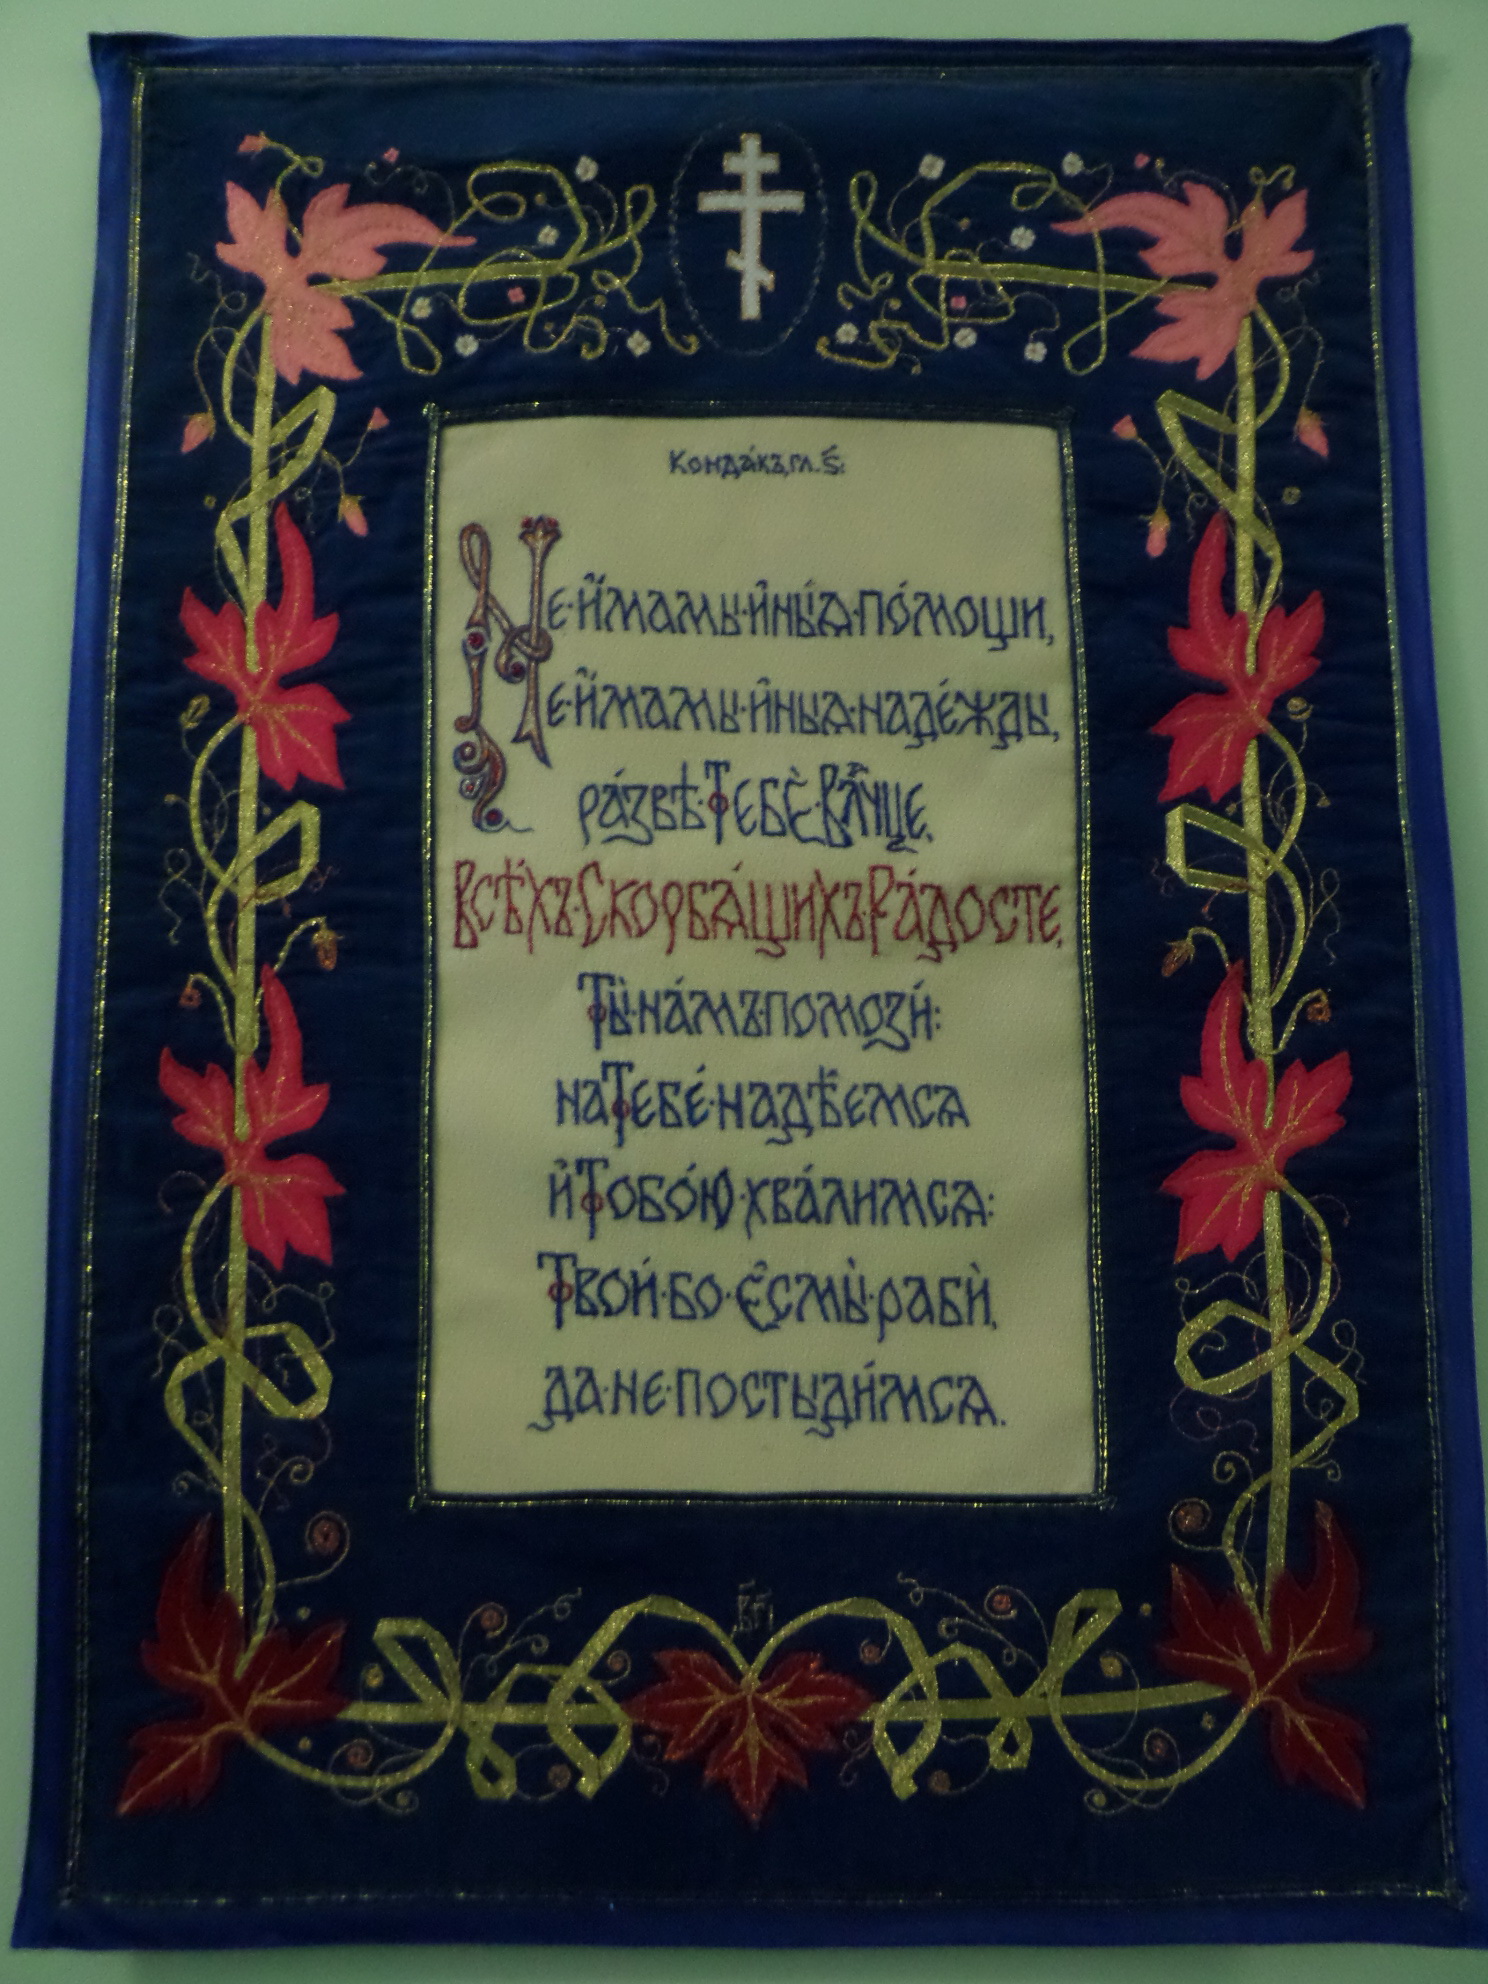 Конда́къ, гл. ѕ҃:
Не·и҆́мамы·и҆ны́ѧ·по́мощи,
Не·и҆́мамы·и҆ны́ѧ·наде́жды,
ра́звѣ·Тебѐ·Влⷣчце.
Всѣ́хъ·Скорбѧ́щихъ·Ра́досте,
Ты̀·на́мъ·помозѝ:
на Тебе́·надѣ́емсѧ
и҆ Тобо́ю·хва́лимсѧ:
Твоѝ·бо·є҆смы̀·рабѝ,
да·не·постыди́мсѧ.